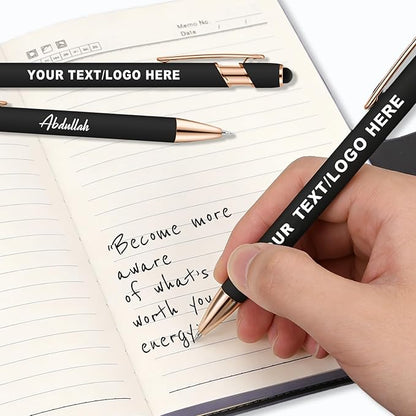 Memo No.
YOUR TEXT/LOGO HERE
Abdullah
YOUR TEXT/LOGO HERE
"Become more
aware
of what's
worth you
energy